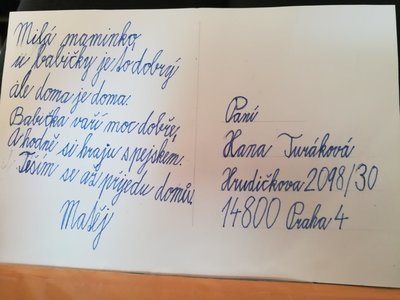 Milá maminko,
u babičky je to dobrý
ale doma je doma.
Babička vaří moc dobře,
A hodně si hraju s pejskem.
Těším se až přijedu domů.
Matěj
Paní
Hana Turáková
Hrudičkova 2098/30
14800 Praha 4